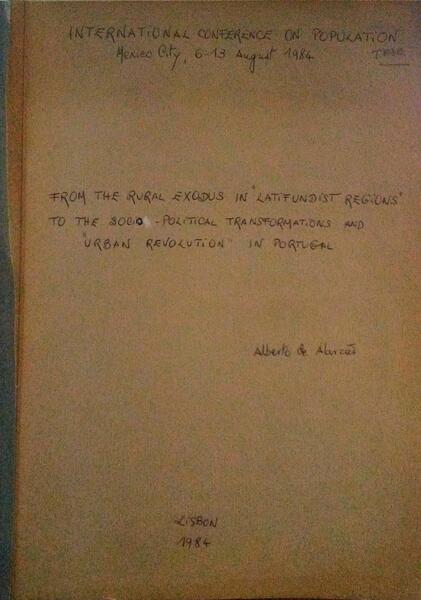 INTERNATIONAL CONFERENCE ON POPULATION
Mexico City, 6-13 August 1984
FROM THE RURAL EXODUS IN "LATIFUNDIST REGIONS"
TO THE SOCIO-POLITICAL TRANSFORMATIONS AND
"URBAN REVOLUTION" IN PORTUGAL
Alberto de Alarcão
LISBON
1984